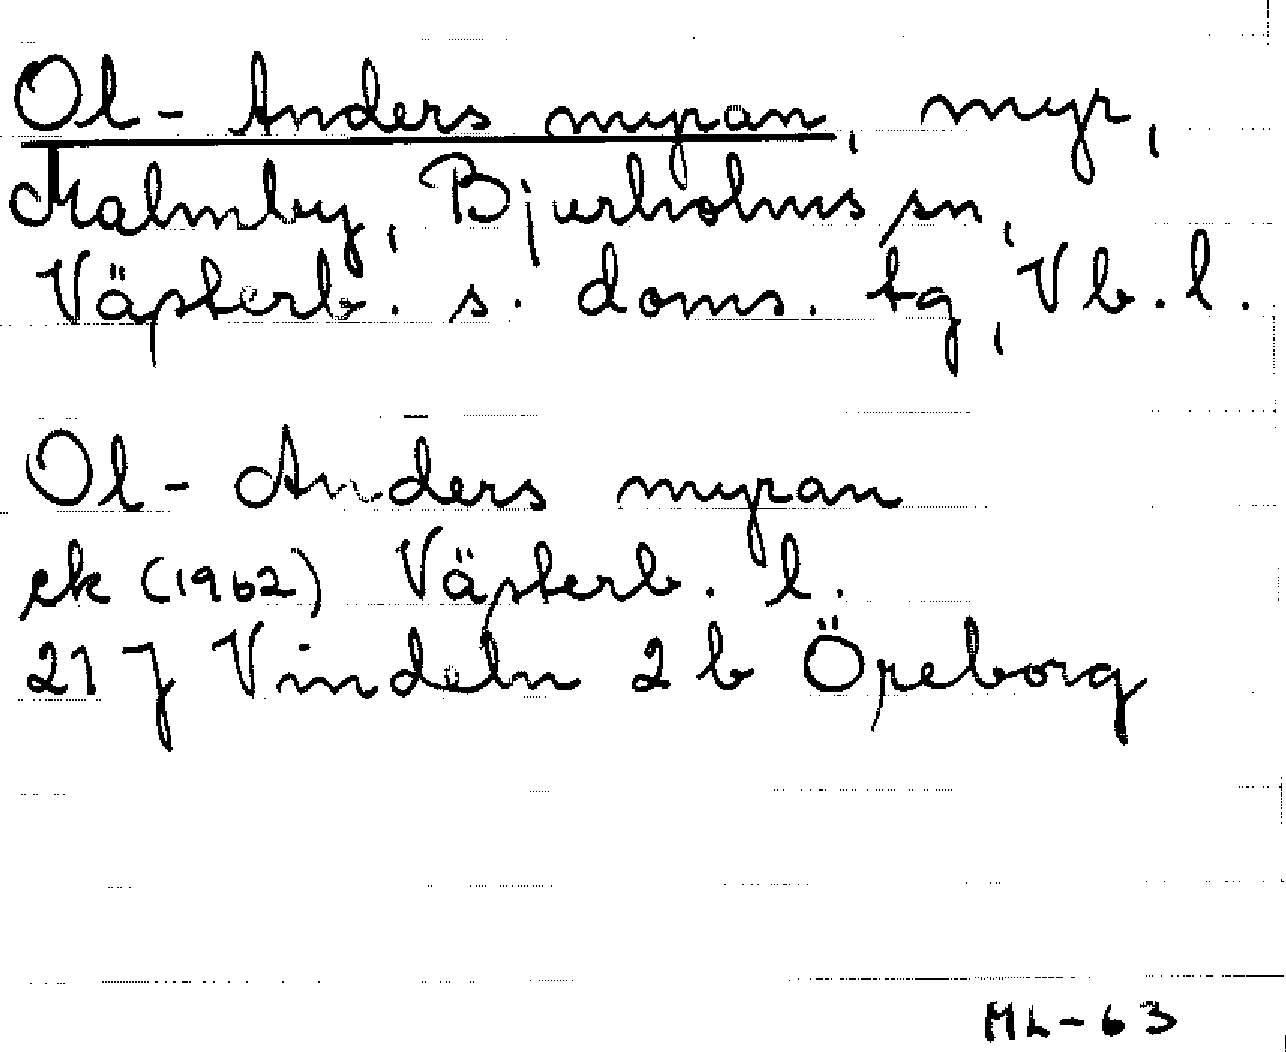 Ol-Anders myran, myr,
Malmby, Bjurholms sn,
Västerb. s. doms. tg, Vb. l.
Ol-Anders myran
ek (1962) Västerb. l.
21 J Vindeln 2 b Öreborg
ML-63